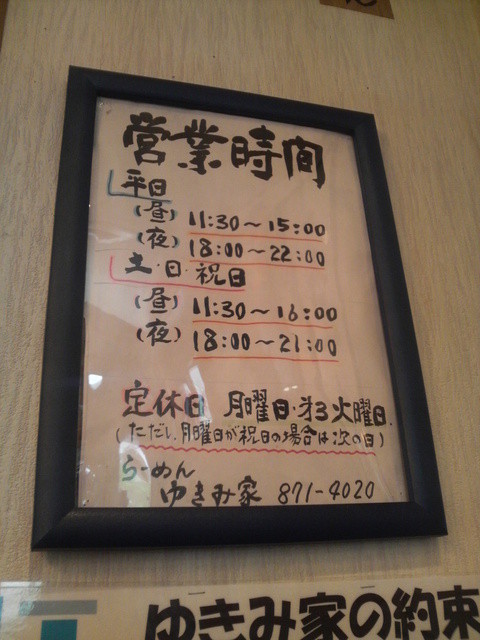 営業時間
平日
(昼) 11:30～15:00
(夜) 18:00～22:00
土・日・祝日
(昼) 11:30～16:00
(夜) 18:00～21:00
定休日 月曜日・才3火曜日
(ただし、月曜日が祝日の場合は次の日)
らーめん
ゆきみ家 871-4020
ゆきみ家の約束